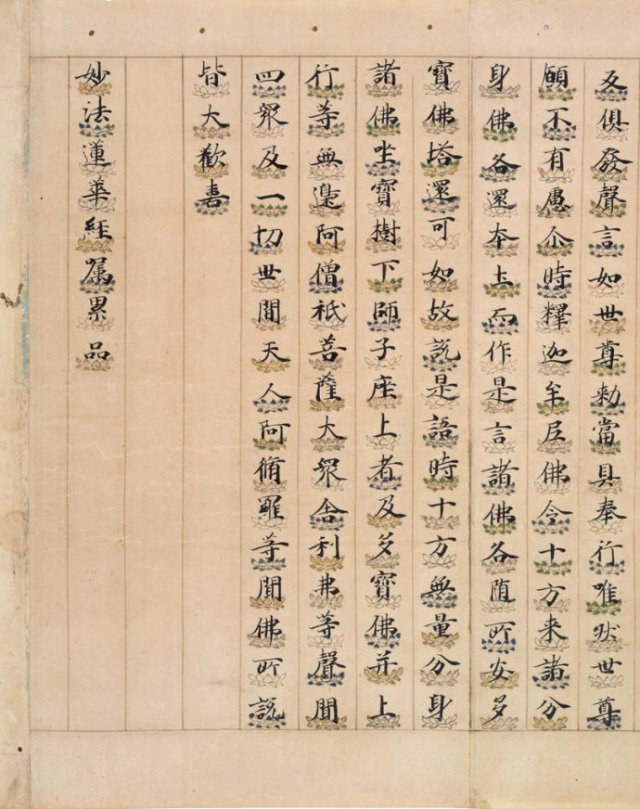 反俱發聲言如世尊勅當具奉行唯然世尊
願不有慮尒時釋迦牟尼佛令十方来諸分
身佛各還本土而作是言諸佛各随所安多
寶佛塔還可如故說是語時十方無量分身
諸佛坐寶樹下師子座上者及多寶佛并上
行等無邊阿僧祇菩薩大衆舍利弗等聲聞
四衆及一切世間天人阿脩羅等聞佛所說
皆大歡喜
妙法蓮華經属累品